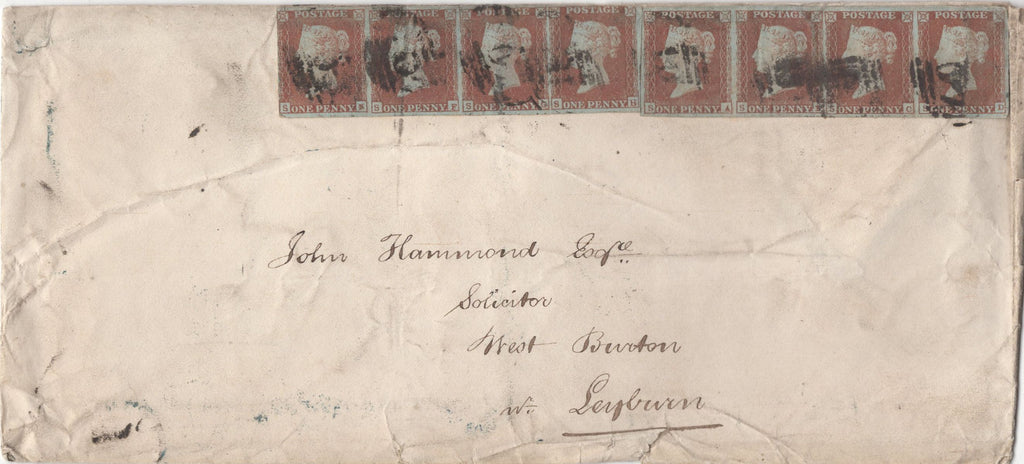 POSTAGE POSTAGE POSTAGE POSTAGE POSTAGE POSTAGE POSTAGE POSTAGE
S ONE PENNY S ONE PENNY S ONE PENNY S ONE PENNY S ONE PENNY A S ONE PENNY S ONE PENNY C ONE PENNY
John Hammond Esqre
Solicitor
West Burton
nr. Leyburn